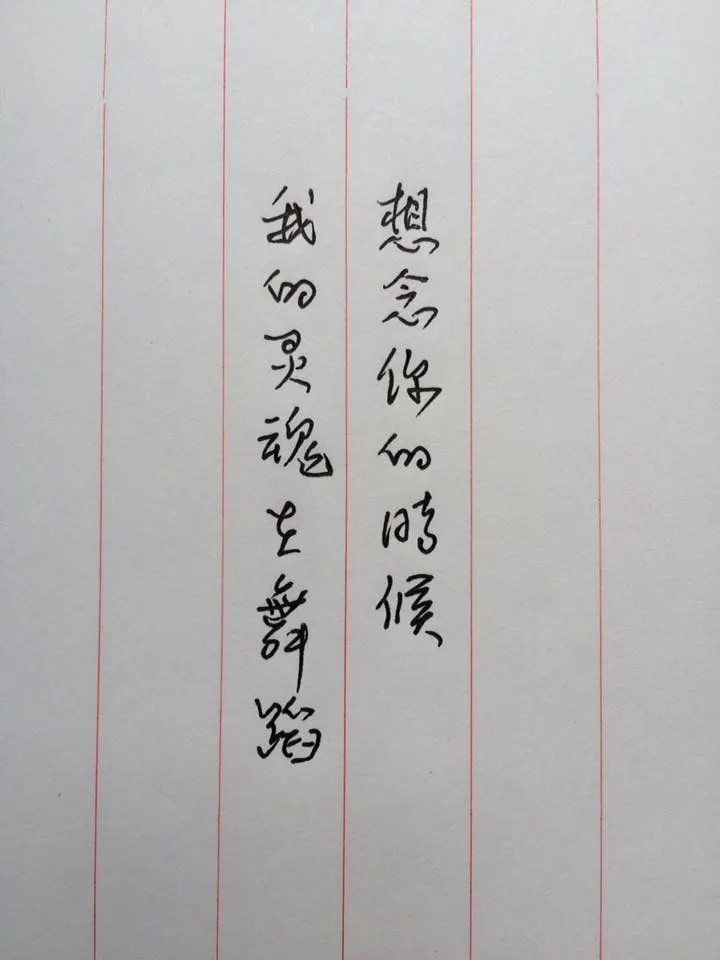 想念你的時候
我的灵魂在舞蹈